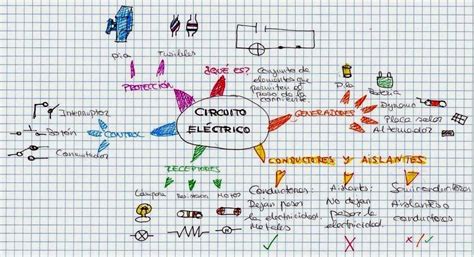 pia
Fusibles
PROTECCIÓN
¿QUÉ ES?
Conjunto de
elementos que
permiten el
paso de la
corriente.
Pila
Batería
GENERADORES
Dynamo
Placa solar
Alternador
CIRCUITO
ELÉCTRICO
Interruptor
Botón
Conmutador
CONTROL
RECEPTORES
Lámpara
Resistencia
Motor
CONDUCTORES Y AISLANTES
Conductores:
Dejan pasar
la electricidad.
Metales
Aislants:
No dejan
pasar la
electricidad.
Semiconductores
Aislantes o
conductores